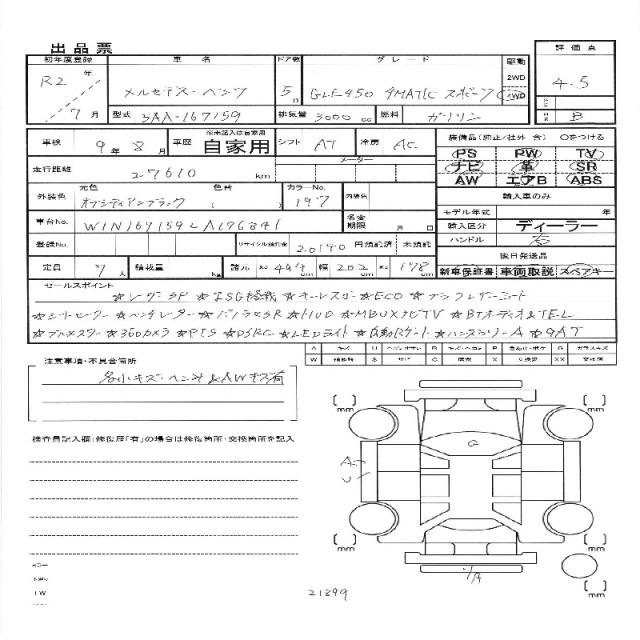 出品票
初年度登録 車名 ドア数 グレード 駆動 評価点
R2年 メルセデス・ベンツ 5 GLE450 4MATIC スポーツ 2WD 4WD 4.5
7月 型式 3AA-167159 排気量 3000 cc 燃料 ガソリン B
車検 9年8月 車歴 ※未記入は自家用 自家用 シフト AT 冷房 AC 装備品(純正/社外 含) Oをつける
走行距離 27610 km メーター PS PW TV
ナビ 革 SR
AW エアB ABS
外装色 元色 オブシディアンブラック 色替 ( ) カラーNo. 197 内装色 輸入車のみ
モデル年式 年
車台No. W1N167159 名義期限 月 日 輸入区分 ディーラー
登録No. リサイクル預託金 20190 円預託済 未預託 ハンドル 右
定員 7人 積載量 kg 諸元 長さ 494 cm 幅 202 cm 178 cm 後日発送品
新車保証書 車両取説 スペアキー
セールスポイント
☆レーダーSP ☆ISG搭載 ☆キーレスゴー ☆ECO ☆ブラックレザーシート
☆シートヒーター ☆ベンチレーター ☆パノラマSR ☆HUD ☆MBUXナビTV ☆BTオーディオ&TEL
☆ブルメスター ☆360カメラ ☆PTS ☆DSRC ☆LEDライト ☆自動Rゲート ☆ハンズフリーA ☆9AT
注意事項・不具合箇所
各小キズ・ヘコミ&AWキズ有
検査員記入欄:修復歴「有」の場合は修復箇所・交換箇所を記入
A U B P G
W S C X XX
( ) mm ( ) mm
G
A
( ) mm ( ) mm
A
[ ] mm
21899